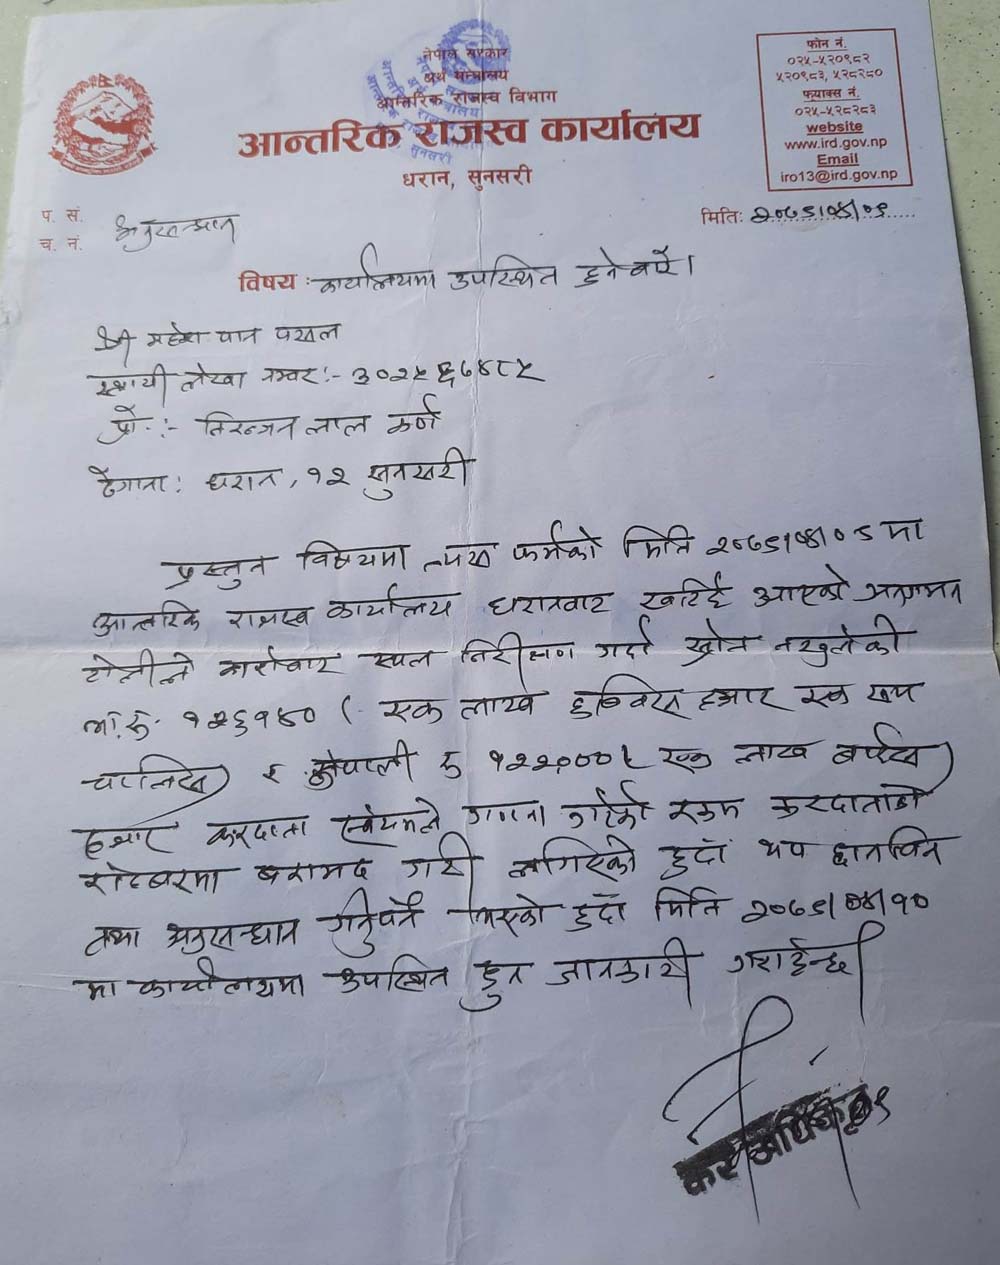 नेपाल सरकार
अर्थ मन्त्रालय
आन्तरिक राजस्व विभाग
आन्तरिक राजस्व कार्यालय
धरान, सुनसरी
फोन नं.
०२५-५२०९८२
५२०९८३, ५२८२८०
फ्याक्स नं.
०२५-५२८२८३
website
www.ird.gov.np
Email
iro13@ird.gov.np
प. सं.
च. नं. अनुसन्धान
मितिः
विषय : कार्यालयमा उपस्थित हुने बारे।
श्री महेश पान पसल
स्थायी लेखा नम्बर :- ३०२५६७४८५
प्रो. :- निरन्जन लाल कर्ण
ठेगाना : धरान, १२ सुनसरी
प्रस्तुत विषयमा त्यस फर्मको मिति मा
आन्तरिक राजस्व कार्यालय धरानबाट खटिई आएको अनुगमन
टोलीले कारोबार स्थल निरीक्षण गर्दा स्रोत नखुलेको
भा.रु. १२६१४० ( एक लाख छब्बिस हजार एक सय
चालिस) र नेपाली रु १२२,०००। एक लाख बाईस
हजार करदाता स्वयमले गणना गरेको रकम करदाताको
रोहबरमा बरामद गरी लगिएको हुदाँ थप छानविन
तथा अनुसन्धान गर्नुपर्ने भएको हुदाँ मिति
मा कार्यालयमा उपस्थित हुन जानकारी गराईन्छ।
कर अधिकृत